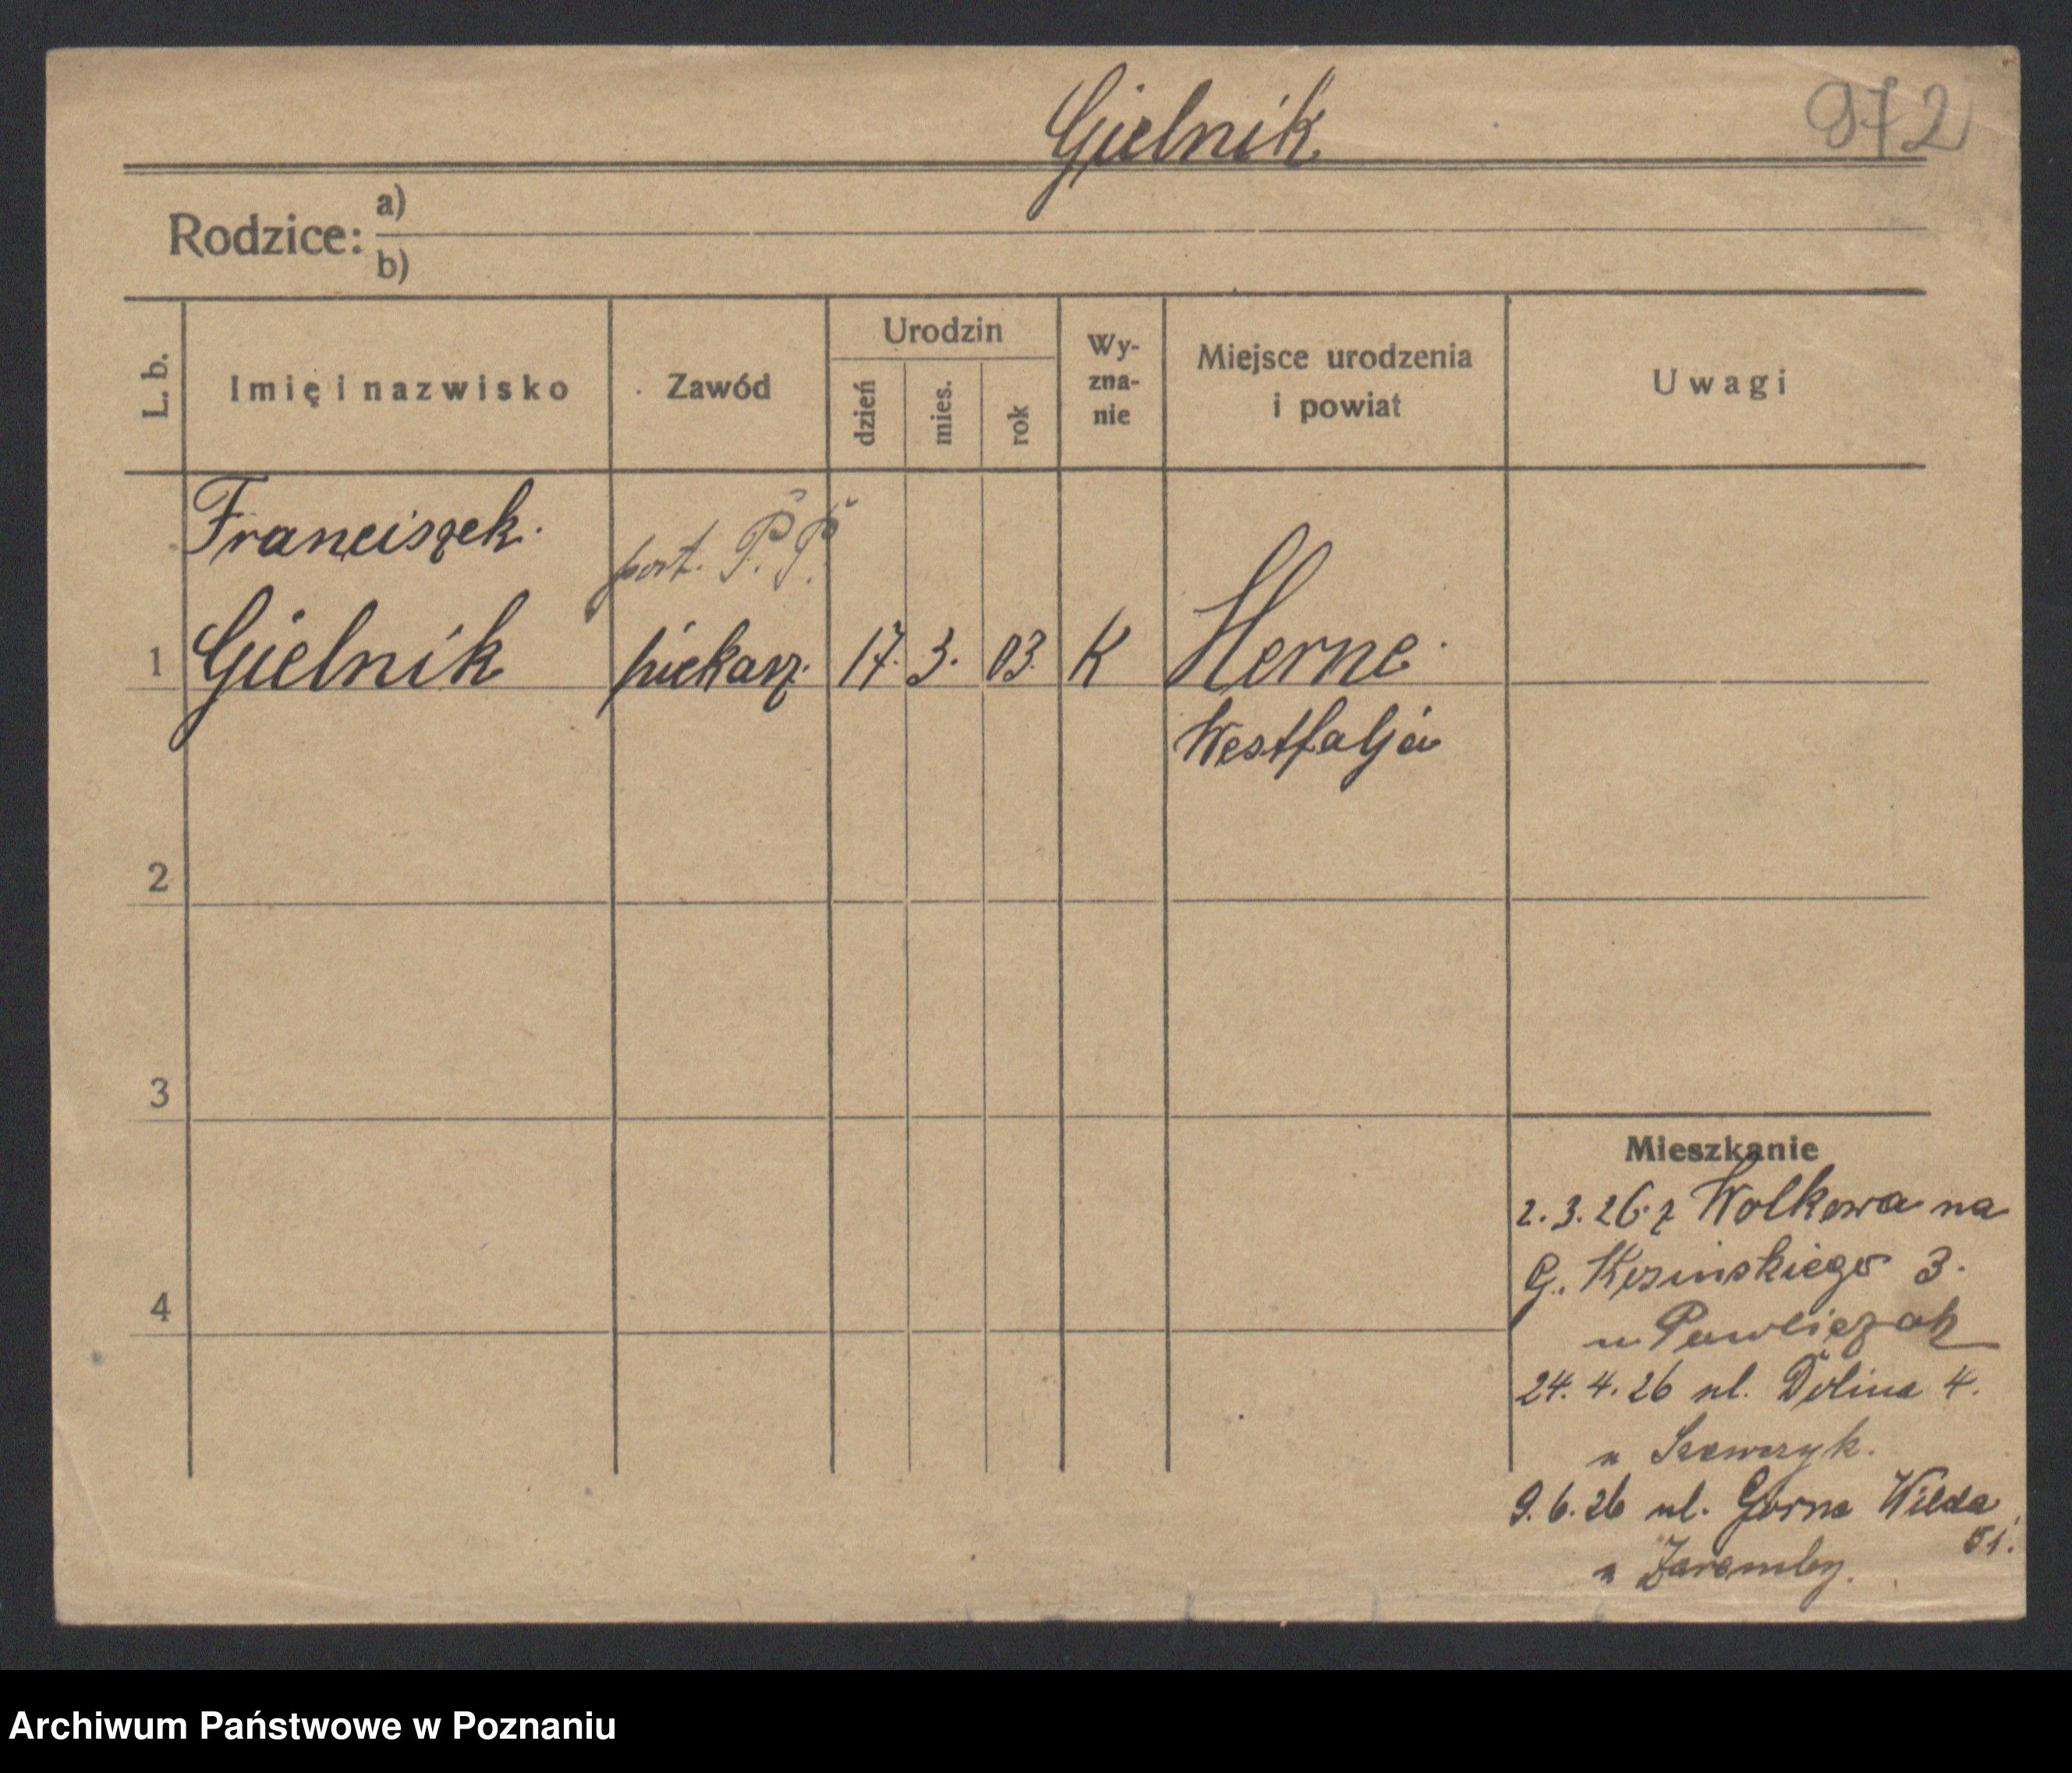 Gielnik
972
Rodzice: a)
b)
L. b.
Imię i nazwisko
Zawód
Urodzin
dzień
mies.
rok
Wy-
zna-
nie
Miejsce urodzenia
i powiat
Uwagi
Franciszek.
post. P. P.
1 Gielnik piekarz. 17. 3. 03. K Herne
Westfalja
2
3
4
Mieszkanie
2. 3. 26. z Wolkowa na
G. 3.
u Pawliczak
24. 4. 26 ul. Dolina 4.
u Szewczyk.
9. 6. 26 ul. Gorna Wilda
51.
u Zaremby.
Archiwum Państwowe w Poznaniu